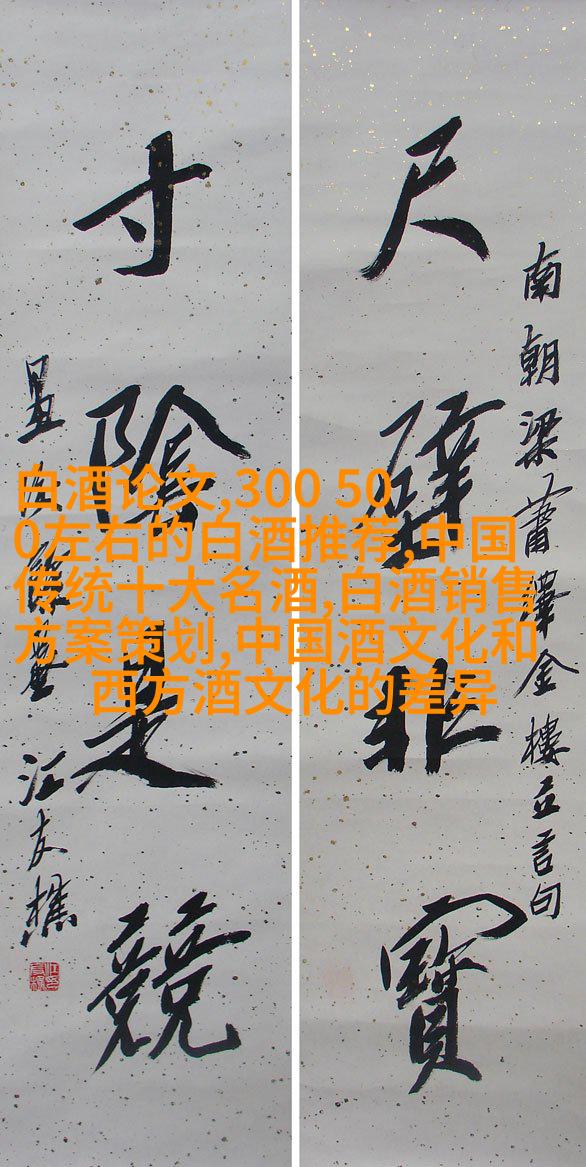 南朝梁蕭繹金樓立言句
尺璧非寶
寸陰是競
江友樵
白酒论文,300 50
0左右的白酒推荐,中国
传统十大名酒,白酒销售
方案策划,中国酒文化和
西方酒文化的差异